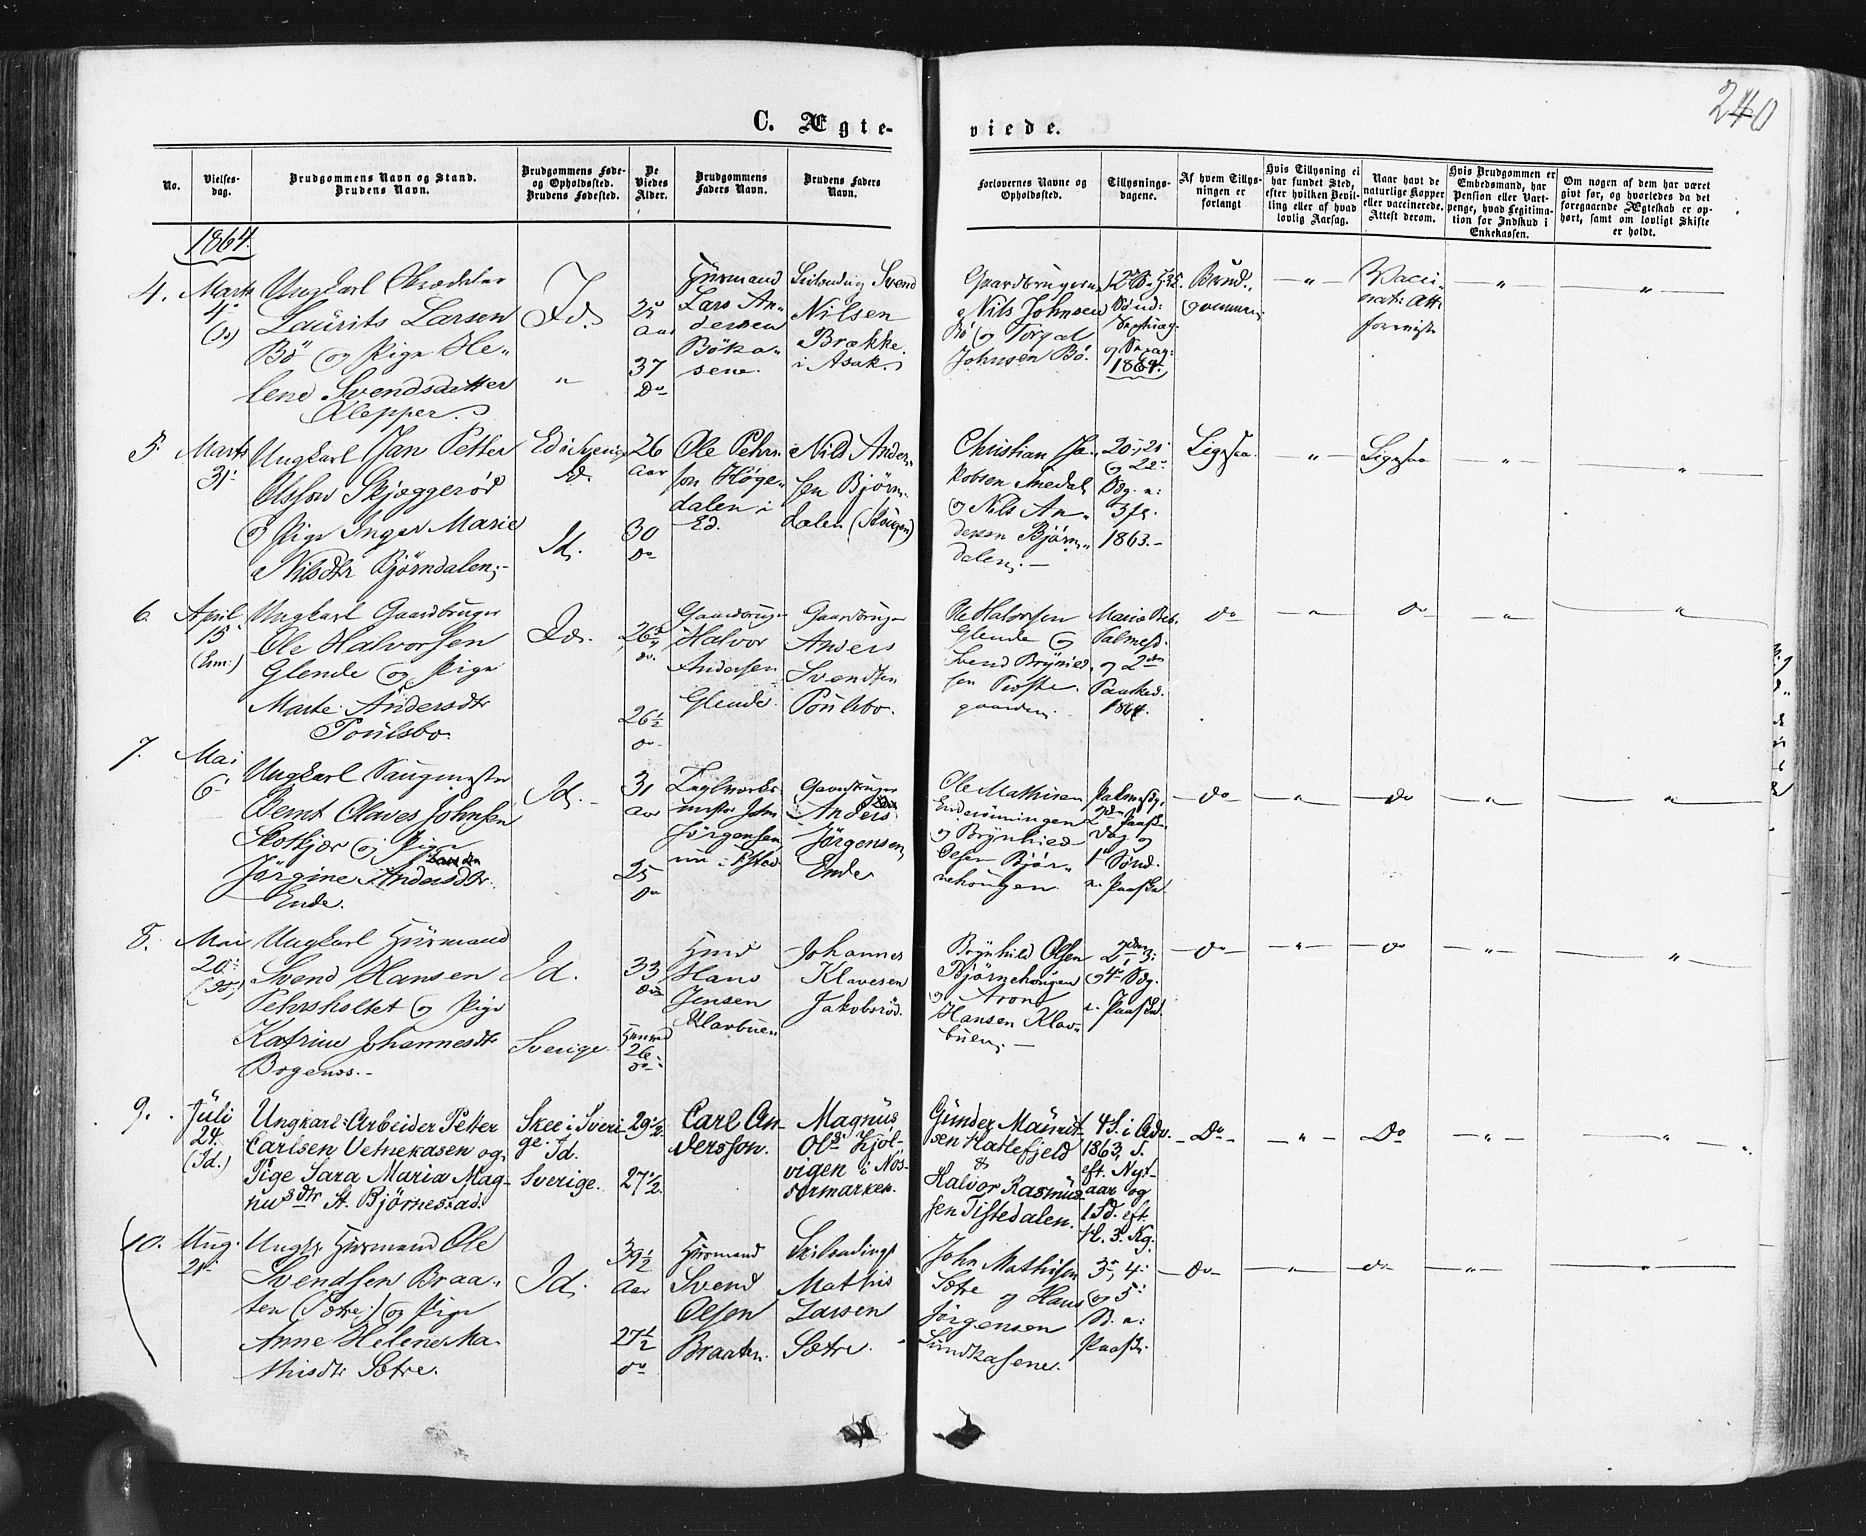 240
C. Ægte-
viede.
No.
Vielses-
dag.
Brudgommens Navn og Stand.
Brudens Navn.
Brudgommens Føde-
og Opholdssted.
Brudens Fødested.
De
Viedes
Alder.
Brudgommens
Faders Navn.
Brudens Faders
Navn.
Forlovernes Navne og
Opholdssted.
Tillysnings-
dagene.
Af hvem Tillys-
ningen er
forlangt
Hvis Tillysning ei
har fundet Sted,
efter hvilken Bevil-
ling eller af hvad
lovlig Aarsag.
Naar havt de
naturlige Kopper
eller vaccinerede.
Attest derom.
Hvis Brudgommen er
Embedsmand, har
Pension eller Vart-
penge, hvad Legitima-
tion for Indskud i
Enkekassen.
Om nogen af dem har været
givt før, og hvorledes da det
foregaaende Ægteskab er op-
hørt, samt om lovligt Skifte
er holdt.
1864.
4.
Marts
4
Ungkarl Skrædder
Laurits Larsen
Bö og Pige He-
lene Svendsdatter
Klepper.
Id.
"
25
Aar
37
Do
Huusmand
Lars An-
dersen
Böka-
sene.
Svend
Nilsen
Brække
i Asak.
Gaardbrugerne
Nils Johnsen
Bö og Torgal
Johnsen Bö.
Sønd:
og
1864.
Brud-
gommen
"
Vacci-
nat: Att:
foreviist
"
"
5.
Marts
31
Ungkarl Jan Petter
Olsson Skjeggeröd
og Pige Inger Marie
Nilsdtr Björndalen.
Ed i Sverige
Id.
Id.
26
Aar
30
Do
Ole Pehrs-
son Höge-
dalen i
Ed.
Nils Ander-
sen Björn-
dalen
Christian Ja-
kobsen Anedal
og Nils An-
dersen Björn-
dalen.
20, 21
og 22
Sdg. e:
1863.
Ligesaa
"
Ligesaa
"
"
6.
April
15
Ungkarl Gaardbruger
Ole Halvorsen
Glende og Pige
Marte Andersdtr
Poulsbo.
Id.
26 3/4
do.
26 1/2
do.
Gaardbruger
Halvor
Andersen
Glende
Gaardbruger
Anders
Svendsen
Poulsbo.
Ole Halvorsen
Glende og
Svend Brynild-
sen
gaarden.
Maria Beb.
Palmesd.
og 2den
Paasked.
1864.
do
"
do
"
"
7.
Mai
6
Ungkarl Saugmester
Bernt Olaves Johnsen
Skotkjær og Pige
Jörgine Andersdtr.
Ende.
Id.
31
Aar
25
do
Teglværks-
mester John
Jörgensen
Gaardbruger
Anders
Jörgensen
Ende
Ole Mathisen
Enderönningen
og Brynhild
Olsen Björ-
nehougen.
Palmesdg.
2den Paaske-
dag og
1ste Sønd.
e. Paaske
do
"
do
"
"
8.
Mai
20
Ungkarl Huusmand
Svend Hansen
Pehrsholtet og Pige
Katrine Johannesdtr
Bogenes.
Id.
Sverige.
33
26
do
Huusmd
Hans
Jensen
Klavbuen
Johannes
Klavesen
Jakobsröd.
Brynhild Olsen
Björnehougen
og Aron
Hansen Klav-
buen.
2den, 3
og 4 Sdg.
e. Paaske
do
"
do
"
"
9.
Juli
24.
(Id.)
Ungkarl Arbeider Petter
Carlsen Vetnekasen og
Pige Sara Maria Mag-
nusdtr A. Björnestad.
Skee i Sveri-
ge. Id.
Sverige.
29 1/2
27 1/2.
Carl An-
dersson.
Magnus
Ols: Kjol-
vigen i Nös-
sormarken.
Gunder Maurit-
sen Hatlefjeld
&
Halvor Rasmus-
sen Tistedalen.
4 S. i Adv.
1863, S.
eft. Nyt-
aar og
1 Sd. eft.
H. 3. Kg.
Do
"
Do
"
"
10.
Aug.
21
Ungk. Huusmand Ole
Svendsen Braa-
ten (Sætre) og Pige
Anne Helene Ma-
thisdtr Sætre.
Id.
39 1/2
Aar
27 1/2
do
Huusmand
Svend
Olsen
Braaten.
Mathis
Larsen
Sætre.
John Mathisen
Sætre og Hans
Jörgensen
Lundkasene.
3, 4
og 5
S. e:
Paaske.
do
"
do
"
"